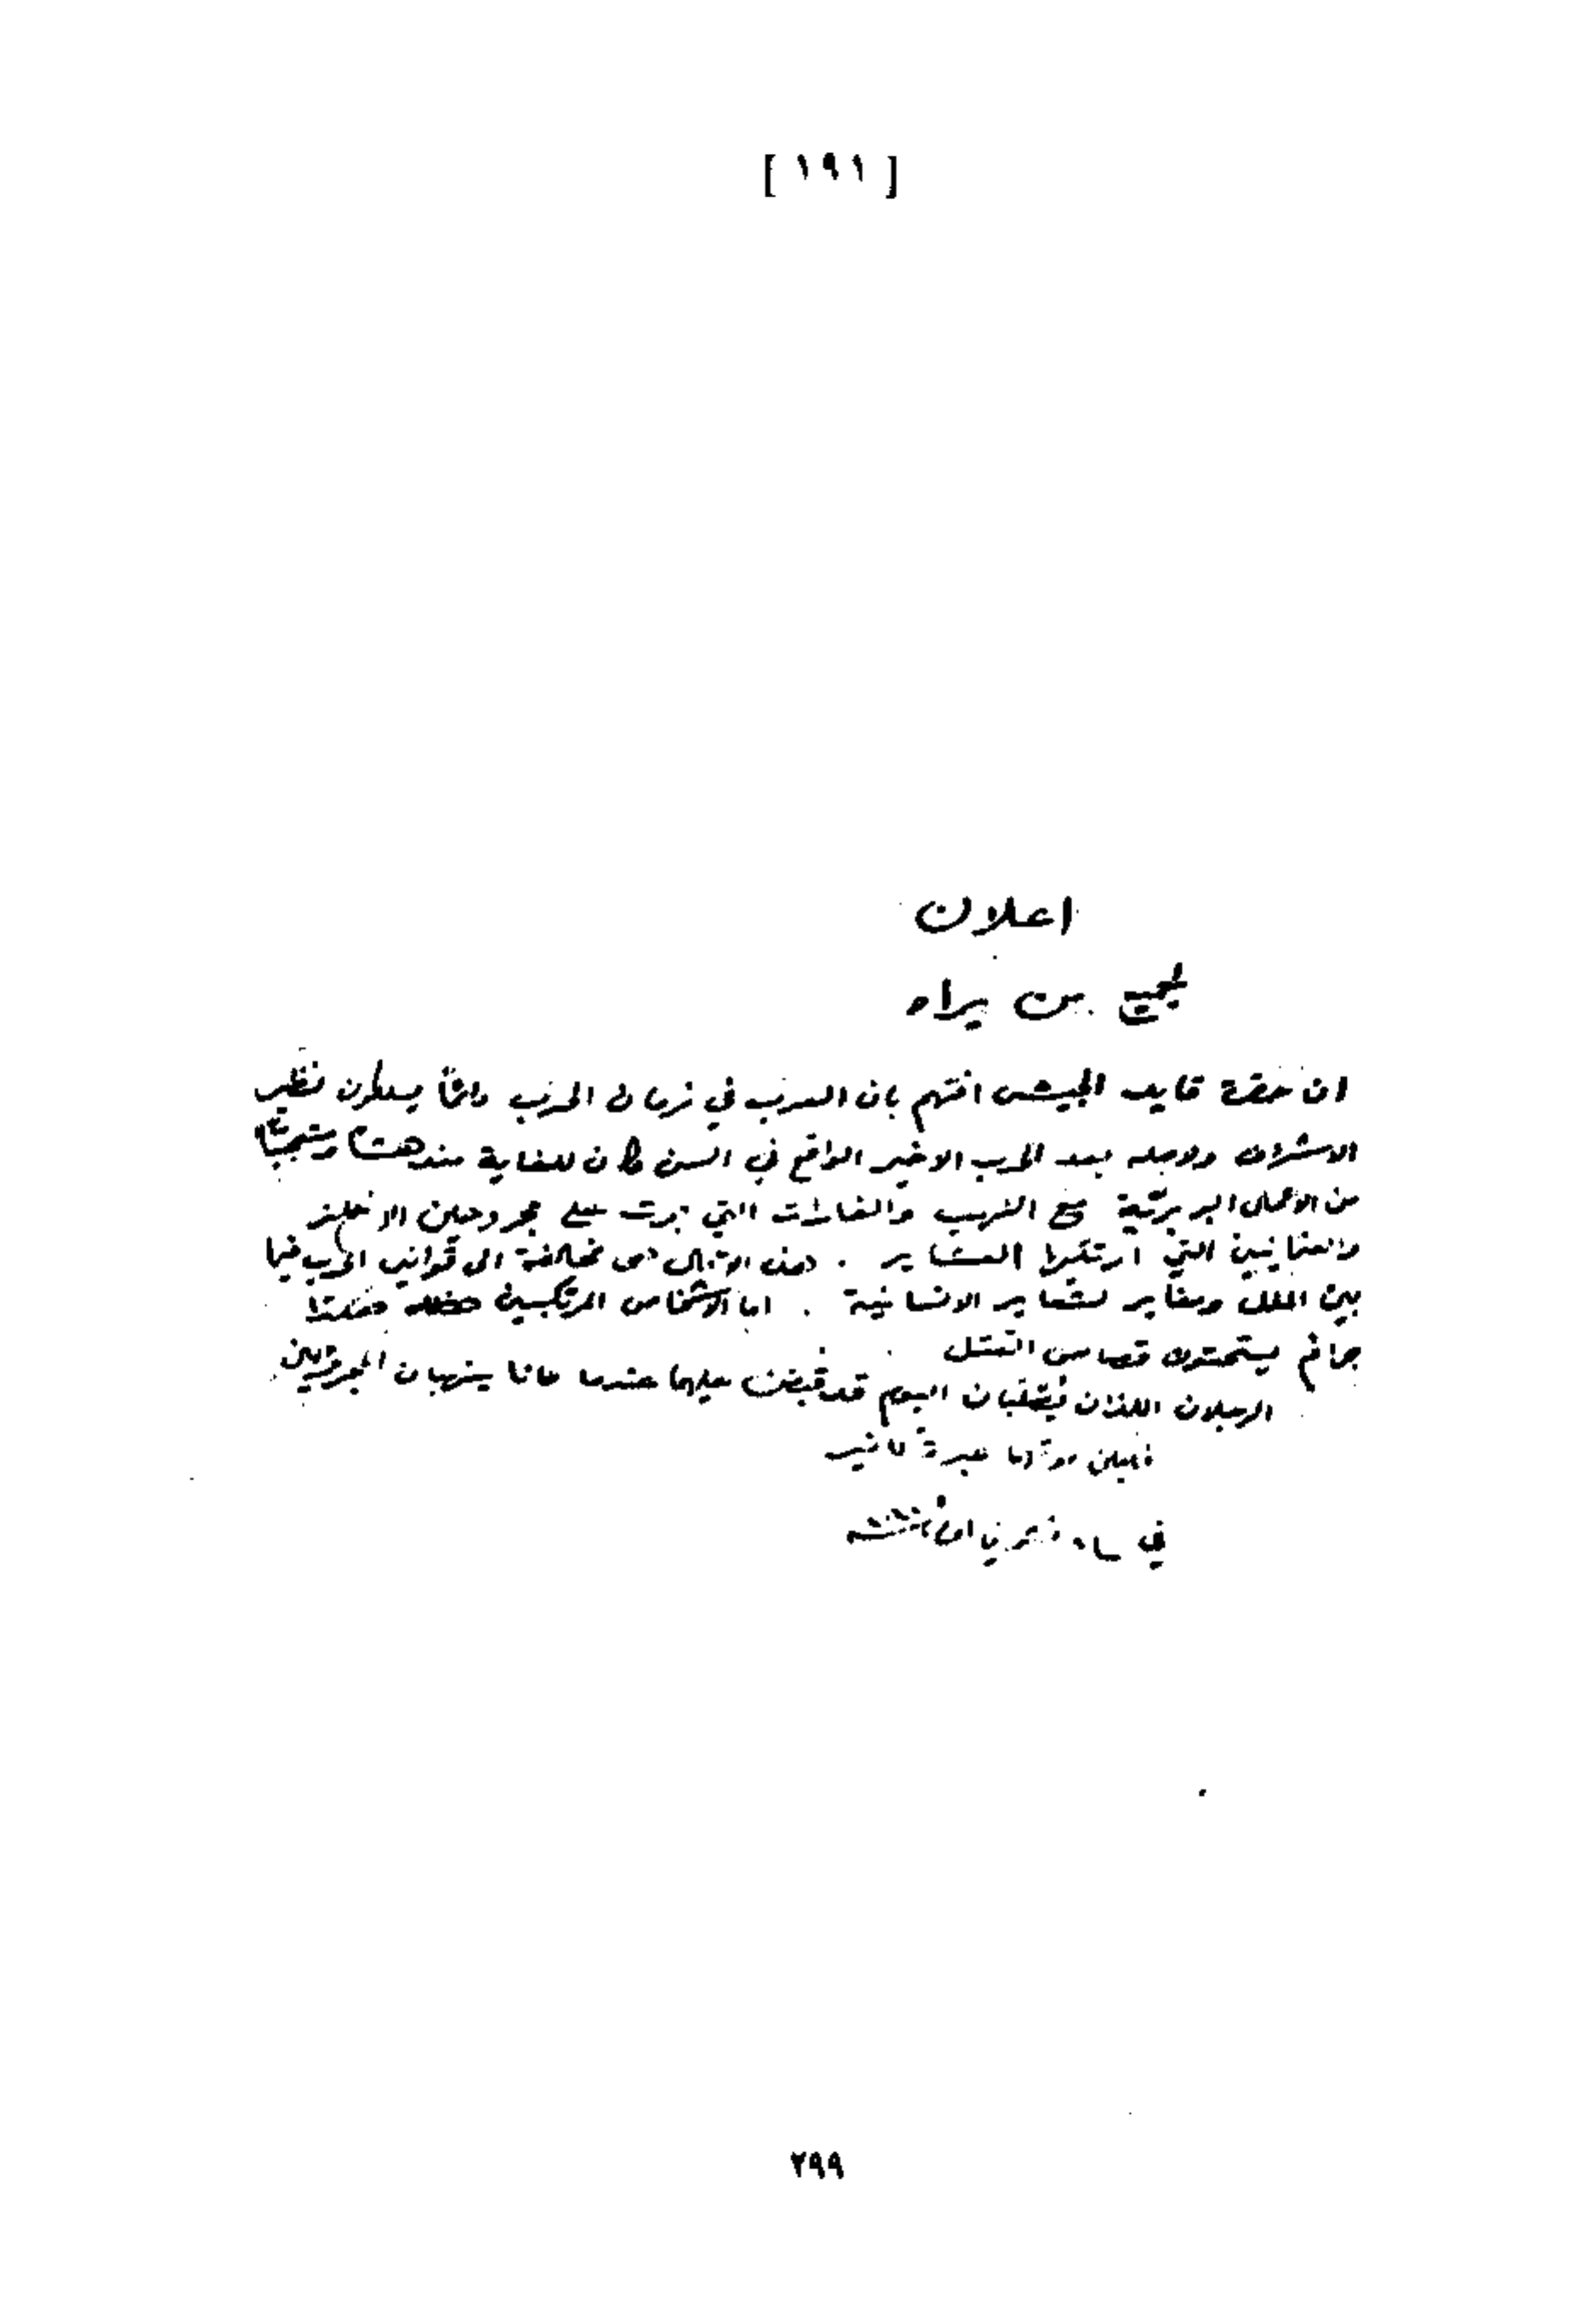 [ ١٩١ ]
اعلان
لجميع من يراه
ان حضرة قايد الجيش افتهم بان العرب في زمان الحرب دائماً يسلكون نظير
الاشراف ولاجله بعد الحرب الاخير الواقع في السن كان للغاية مندهشا
من الاعمال البربريّة مع النهب والغارات التي جرت على مجروحين الانكليز
والعثمانيين التي ارتكبها العشاير . هذه الافعال هي مخالفة الى قوانين الحرب فيما
بين الملل ومغاير لشعاير الانسانية . اما الاشخاص المرتكبين
جرائم يستحقون قصاص القتل
الرجلان اللذان يُصلبان اليوم قد قبضت عليهما عندما كانا ينهبان المجروحين
فليكن موتهما عبرةً للغير
في تشرين الثاني
٢٩٩